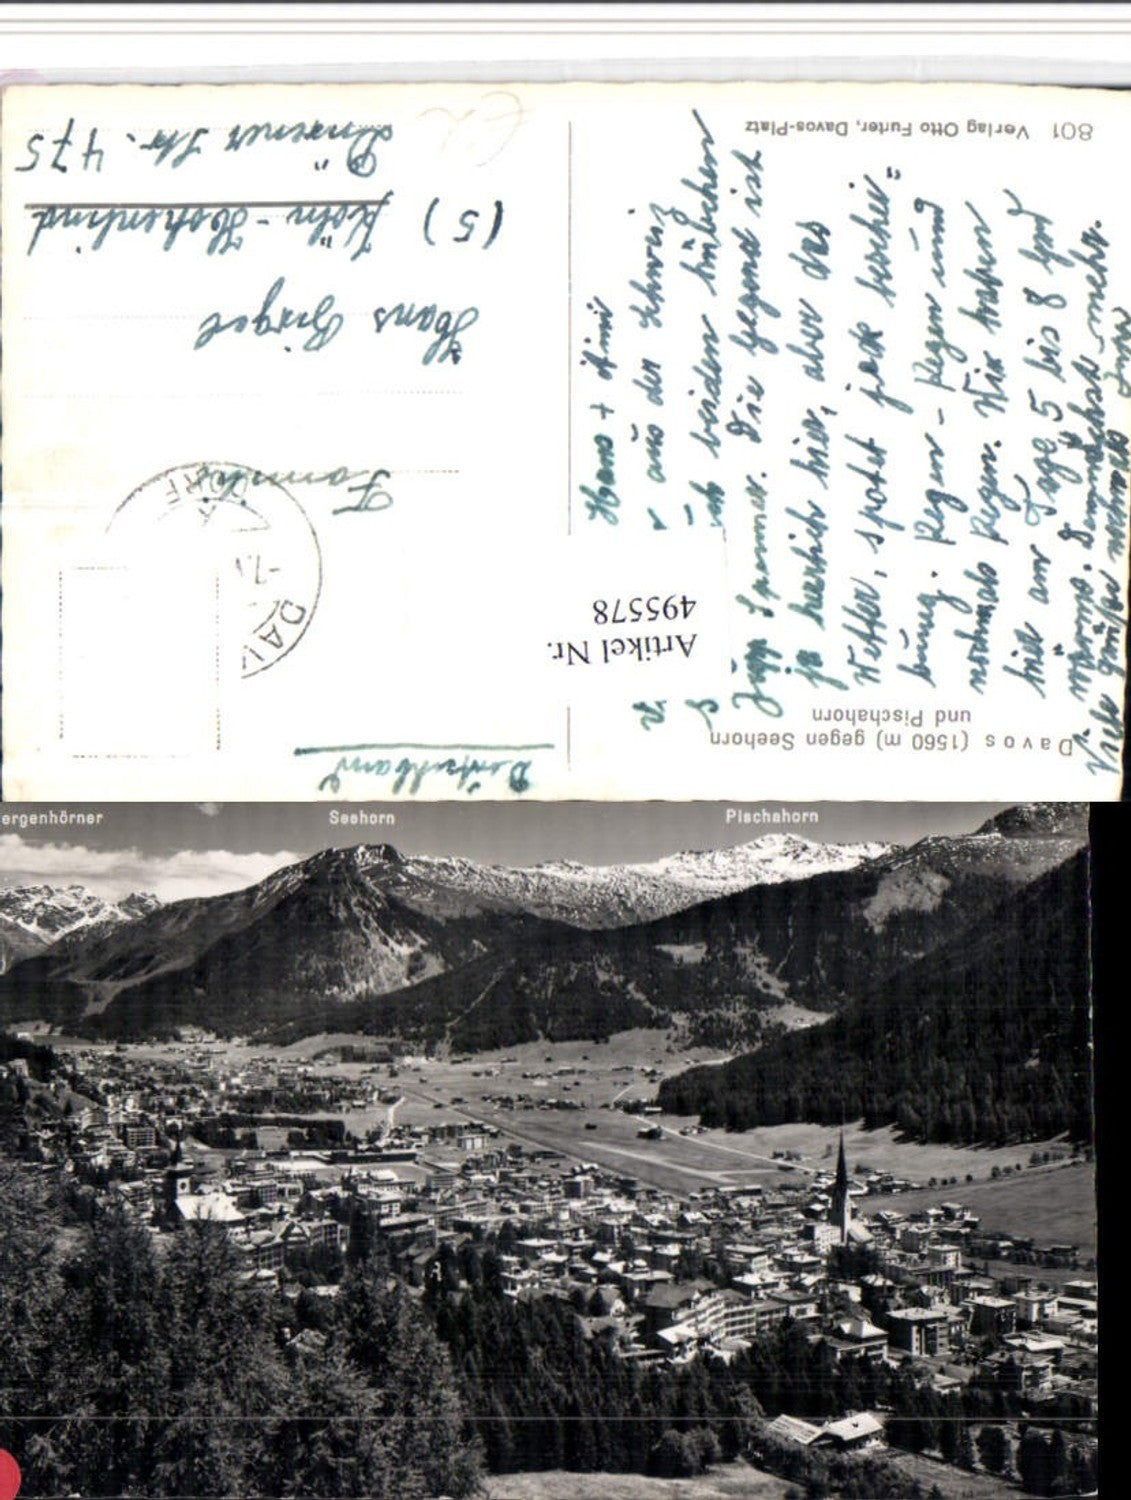 Davos (1560 m) gegen Seehorn
und Pischahorn
801 Verlag Otto Furter, Davos-Platz
Artikel Nr.
495578
Deutschland
DAV
DORF
-7.
Familie
Hans
(5) Köln-
Dürener Str. 475
Hans +
aus der Schweiz
beiden hübschen
Die Gegend ist
ja herrlich hier, aber das
Wetter, spottet jede beschrei"
bung. Regen - Regen und
nochmals Regen. Wir haben
hier am Tage 5 bis 8 Grad
wärme. Demnächst mehr.
Viele Grüße
ergenhörner
Seehorn
Pischahorn